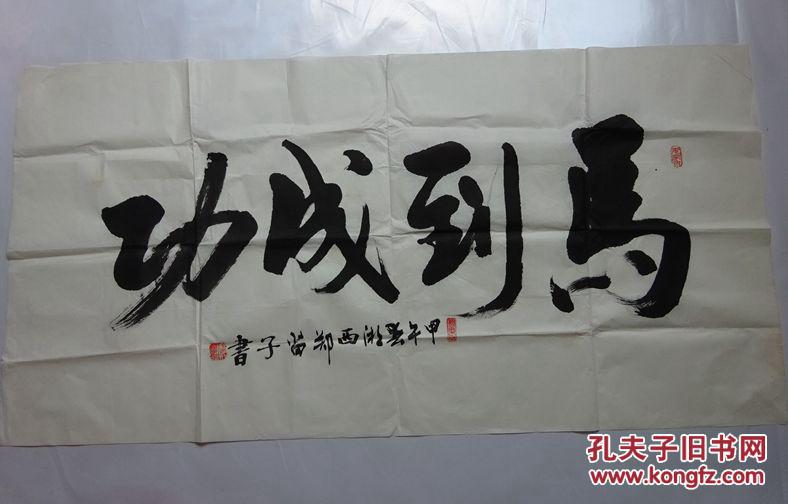 馬到成功
甲午春湘西鄭苗子書
孔夫子旧书网
www.kongfz.com